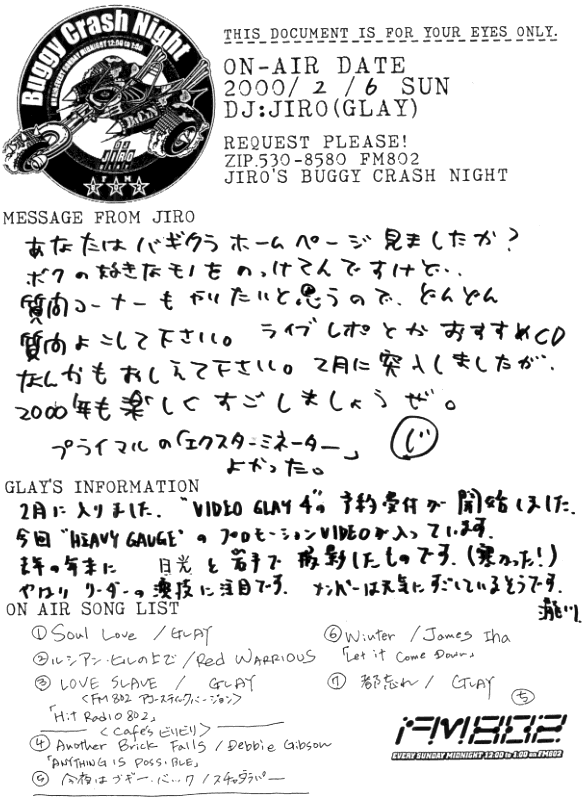 Buggy Crash Night
ON AIR EVERY SUNDAY MIDNIGHT 12:00 to 1:00
DJ
JIRO
FM
802
THIS DOCUMENT IS FOR YOUR EYES ONLY.
ON-AIR DATE
2000/2/6 SUN
DJ:JIRO(GLAY)
REQUEST PLEASE!
ZIP.530-8580 FM802
JIRO'S BUGGY CRASH NIGHT
MESSAGE FROM JIRO
あなたはバギクラホームページ見ましたか?
ボクの好きなモノをのっけてんですけど..
質問コーナーもやりたいと思うので、どんどん
質問よこして下さい。ライブレポとかおすすめCD
なんかもおしえて下さい。2月に突入しましたが、
2000年も楽しくすごしましょうぜ。
プライマルの「エクスターミネーター」
よかった。
じ
GLAY'S INFORMATION
2月に入りました。"VIDEO GLAY 4"の予約受付が開始しました。
今回"HEAVY GAUGE"のプロモーションVIDEOが入っています。
去年の年末に 日光と岩手で撮影したものです。(寒かった!)
やはりリーダーの演技に注目です。メンバーは元気にすごしているそうです。
瀧川
ON AIR SONG LIST
①Soul Love / GLAY
②ルシアン・ヒルの上で / Red WARRIOUS
③ LOVE SLAVE / GLAY
<FM802 アコースティックバージョン>
「Hit Radio 802」
<Cafe's ビリビリ>
④ Another Brick Falls / Debbie Gibson
「ANYTHING IS POSSIBLE」
⑤ 今夜はブギー・バック / スチャダラパー
⑥Winter / James Iha
「Let it Come Down」
⑦ 都忘れ / GLAY
⑤
FM802
EVERY SUNDAY MIDNIGHT 12:00 to 1:00 on FM802